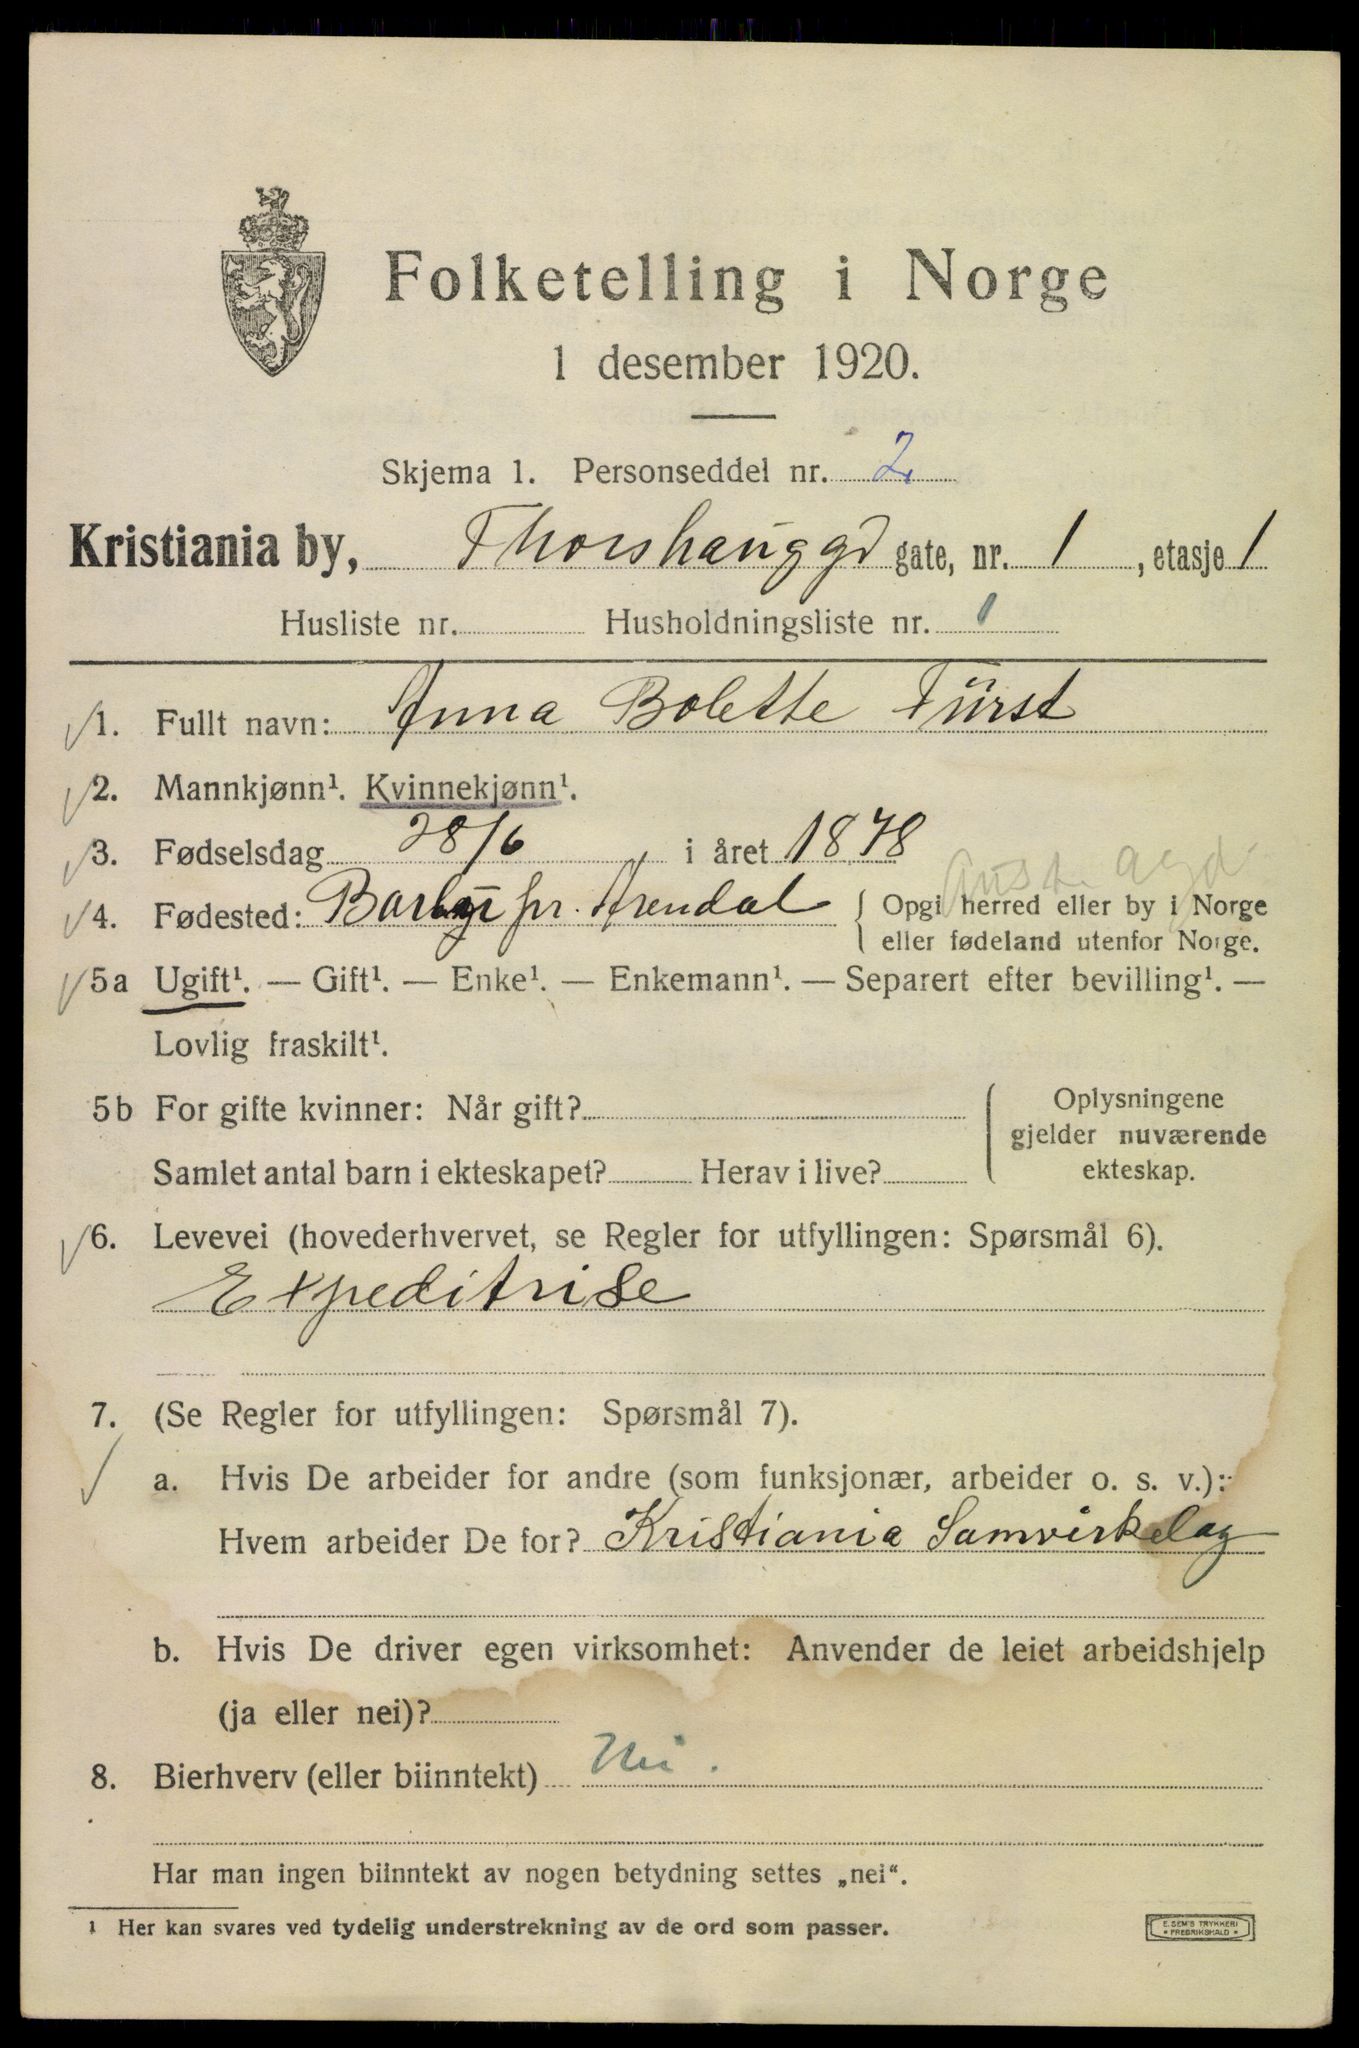 Folketelling i Norge
1 desember 1920.
Skjema 1. Personseddel nr. 2
Kristiania by, Thorshauggd gate, nr. 1, etasje 1
Husliste nr. Husholdningsliste nr. 1
1. Fullt navn: Anna Bolette Fürst
2. Mannkjønn¹. Kvinnekjønn¹.
3. Fødselsdag 28/6 i året 1878
Aust. agd.
4. Fødested: Barbu pr. Arendal { Opgi herred eller by i Norge
eller fødeland utenfor Norge.
5a Ugift¹. — Gift¹. — Enke¹. — Enkemann¹. — Separert efter bevilling¹. —
Lovlig fraskilt¹.
5b For gifte kvinner: Når gift?
Samlet antal barn i ekteskapet? Herav i live?
Oplysningene
gjelder nuværende
ekteskap.
6. Levevei (hovederhvervet, se Regler for utfyllingen: Spørsmål 6).
Expeditrise
7. (Se Regler for utfyllingen: Spørsmål 7).
a. Hvis De arbeider for andre (som funksjonær, arbeider o. s. v.):
Hvem arbeider De for? Kristiania Samvirkelag
b. Hvis De driver egen virksomhet: Anvender de leiet arbeidshjelp
(ja eller nei)?
8. Bierhverv (eller biinntekt) Nei.
Har man ingen biinntekt av nogen betydning settes „nei“.
¹ Her kan svares ved tydelig understrekning av de ord som passer.
E. SEM'S TRYKKERI
* FREDRIKSHALD *